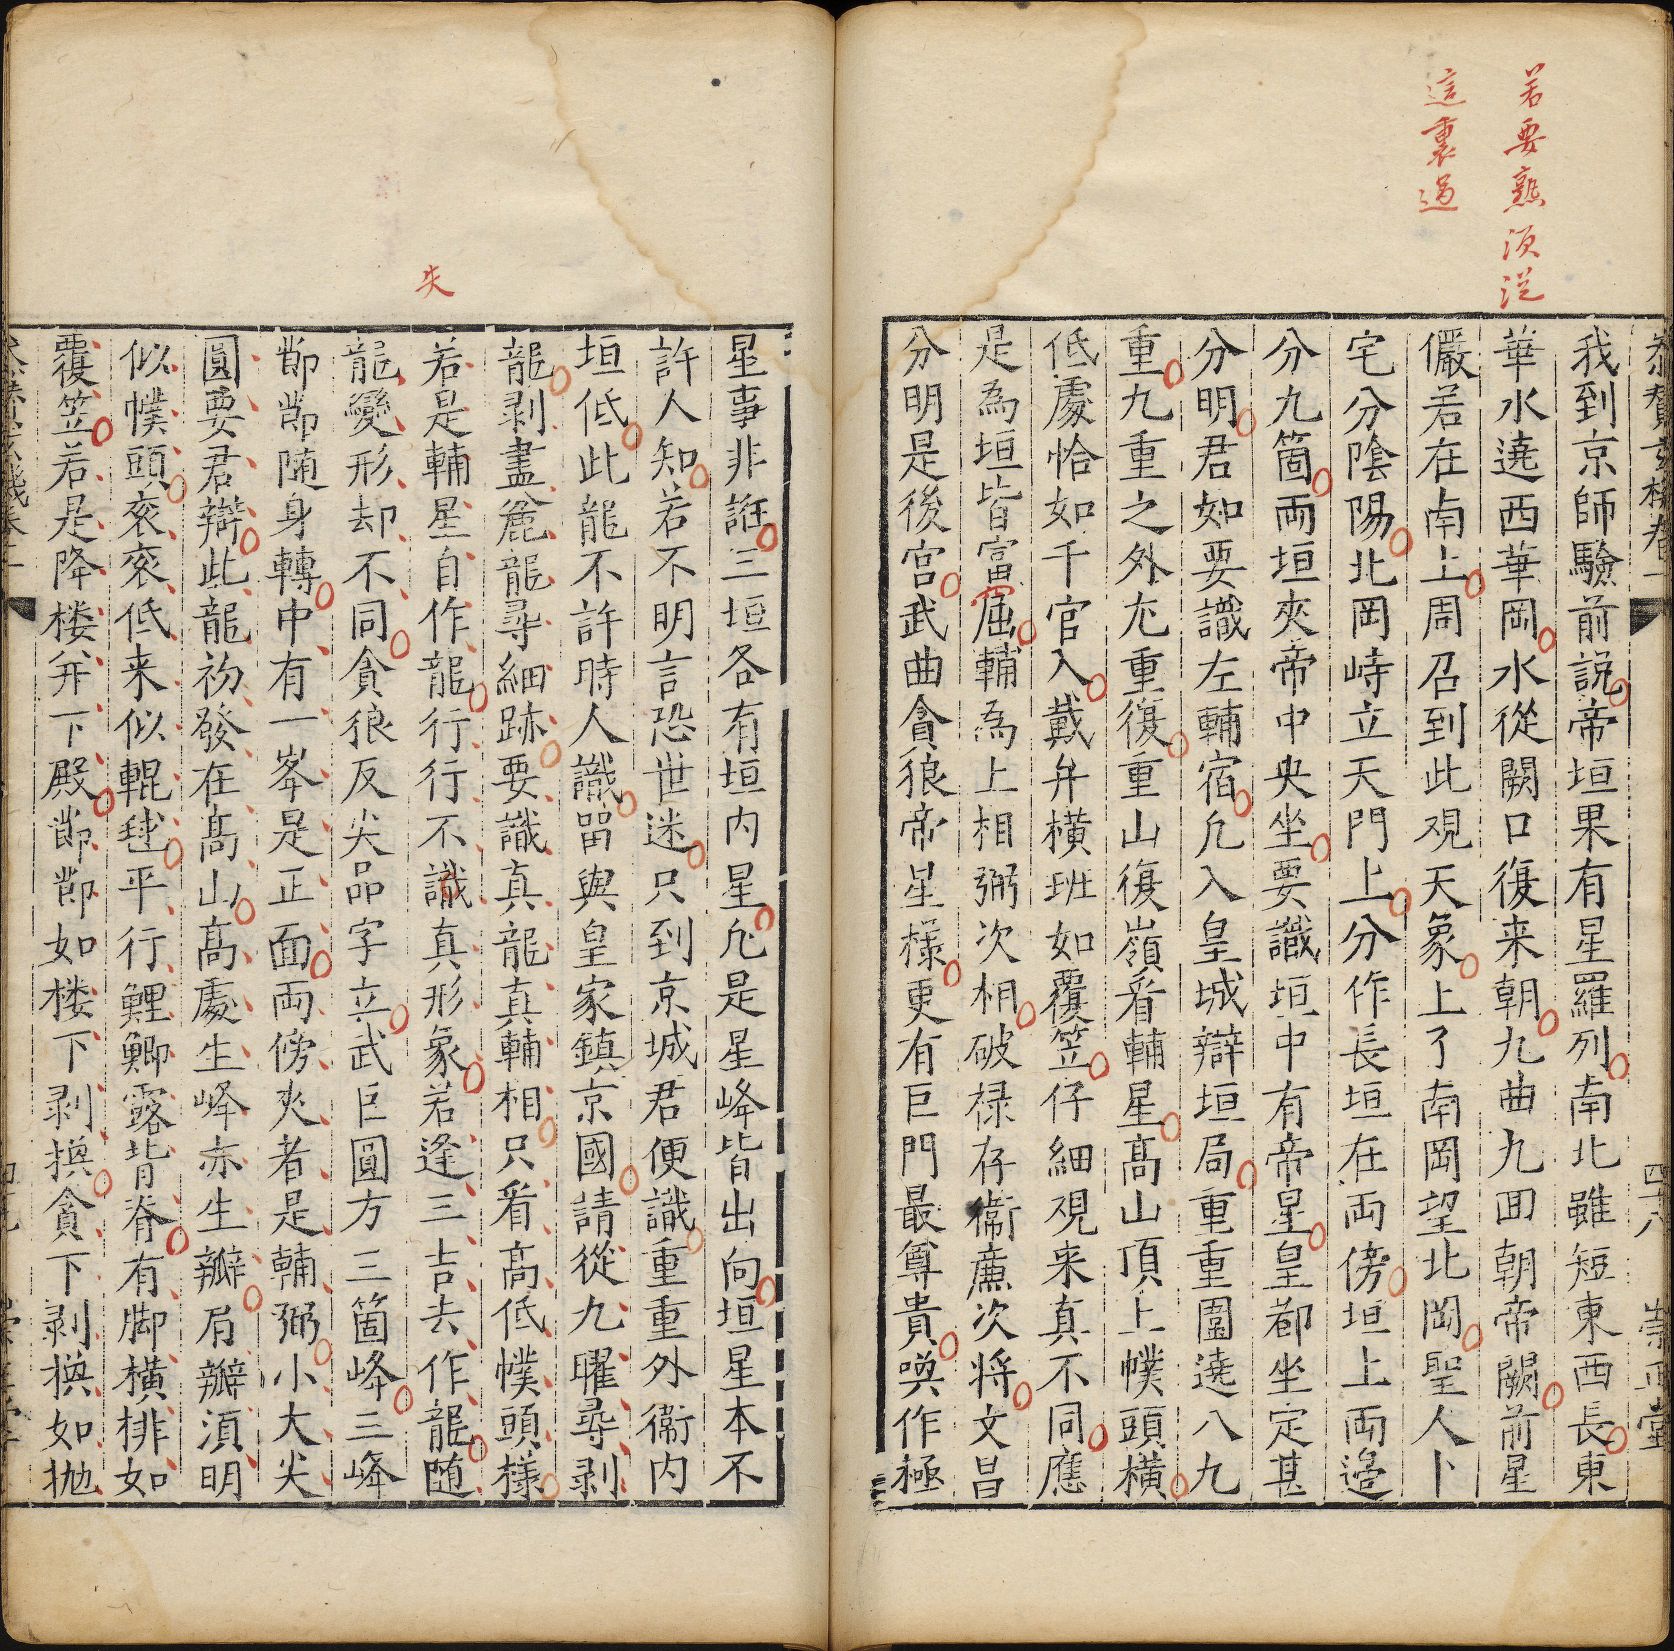 若要熟須從
這裏過
我到京師驗前説帝垣果有星羅列南北雖短東西長東
華水遶西華岡水從闕口復来朝九曲九回朝帝闕前星
儼若在南上周召到此覌天象上了南岡望北岡聖人卜
宅分陰陽北岡峙立天門上分作長垣在両傍垣上両邉
分九箇両垣夾帝中央坐要識垣中有帝星皇都坐定甚
分明君如要識左輔宿凢入皇城辯垣局重重圍遶八九
重九重之外尤重復重山復嶺看輔星髙山頂上幞頭横
低處恰如千官入戴弁横班如覆笠仔細覌来真不同應
是為垣皆富窟輔為上相弼次相破禄存衞亷次将文昌
分明是後宫武曲貪狼帝星様更有巨門最尊貴喚作極
星事非誑三垣各有垣内星凢是星峰皆出向垣星本不
許人知若不明言恐世迷只到京城君便識重重外衞内
垣低此龍不許時人識留與皇家鎮京國請從九曜尋剥
龍剥盡麄龍尋細跡要識真龍真輔相只看高低幞頭様
夾
若是輔星自作龍行行不識真形象若逢三吉去作龍随
龍變形却不同貪狼反尖品字立武巨圓方三箇峰三峰
節節随身轉中有一峯是正面両傍夾者是輔弼小大尖
圓要君辯此龍初發在髙山髙處生峰亦生瓣肩瓣須明
似幞頭衮衮低来似輥毬平行鯉鯽露背脊有脚横排如
覆笠若是降楼并下殿節節如楼下剥換貪下剥換如抛
四十八
崇正堂